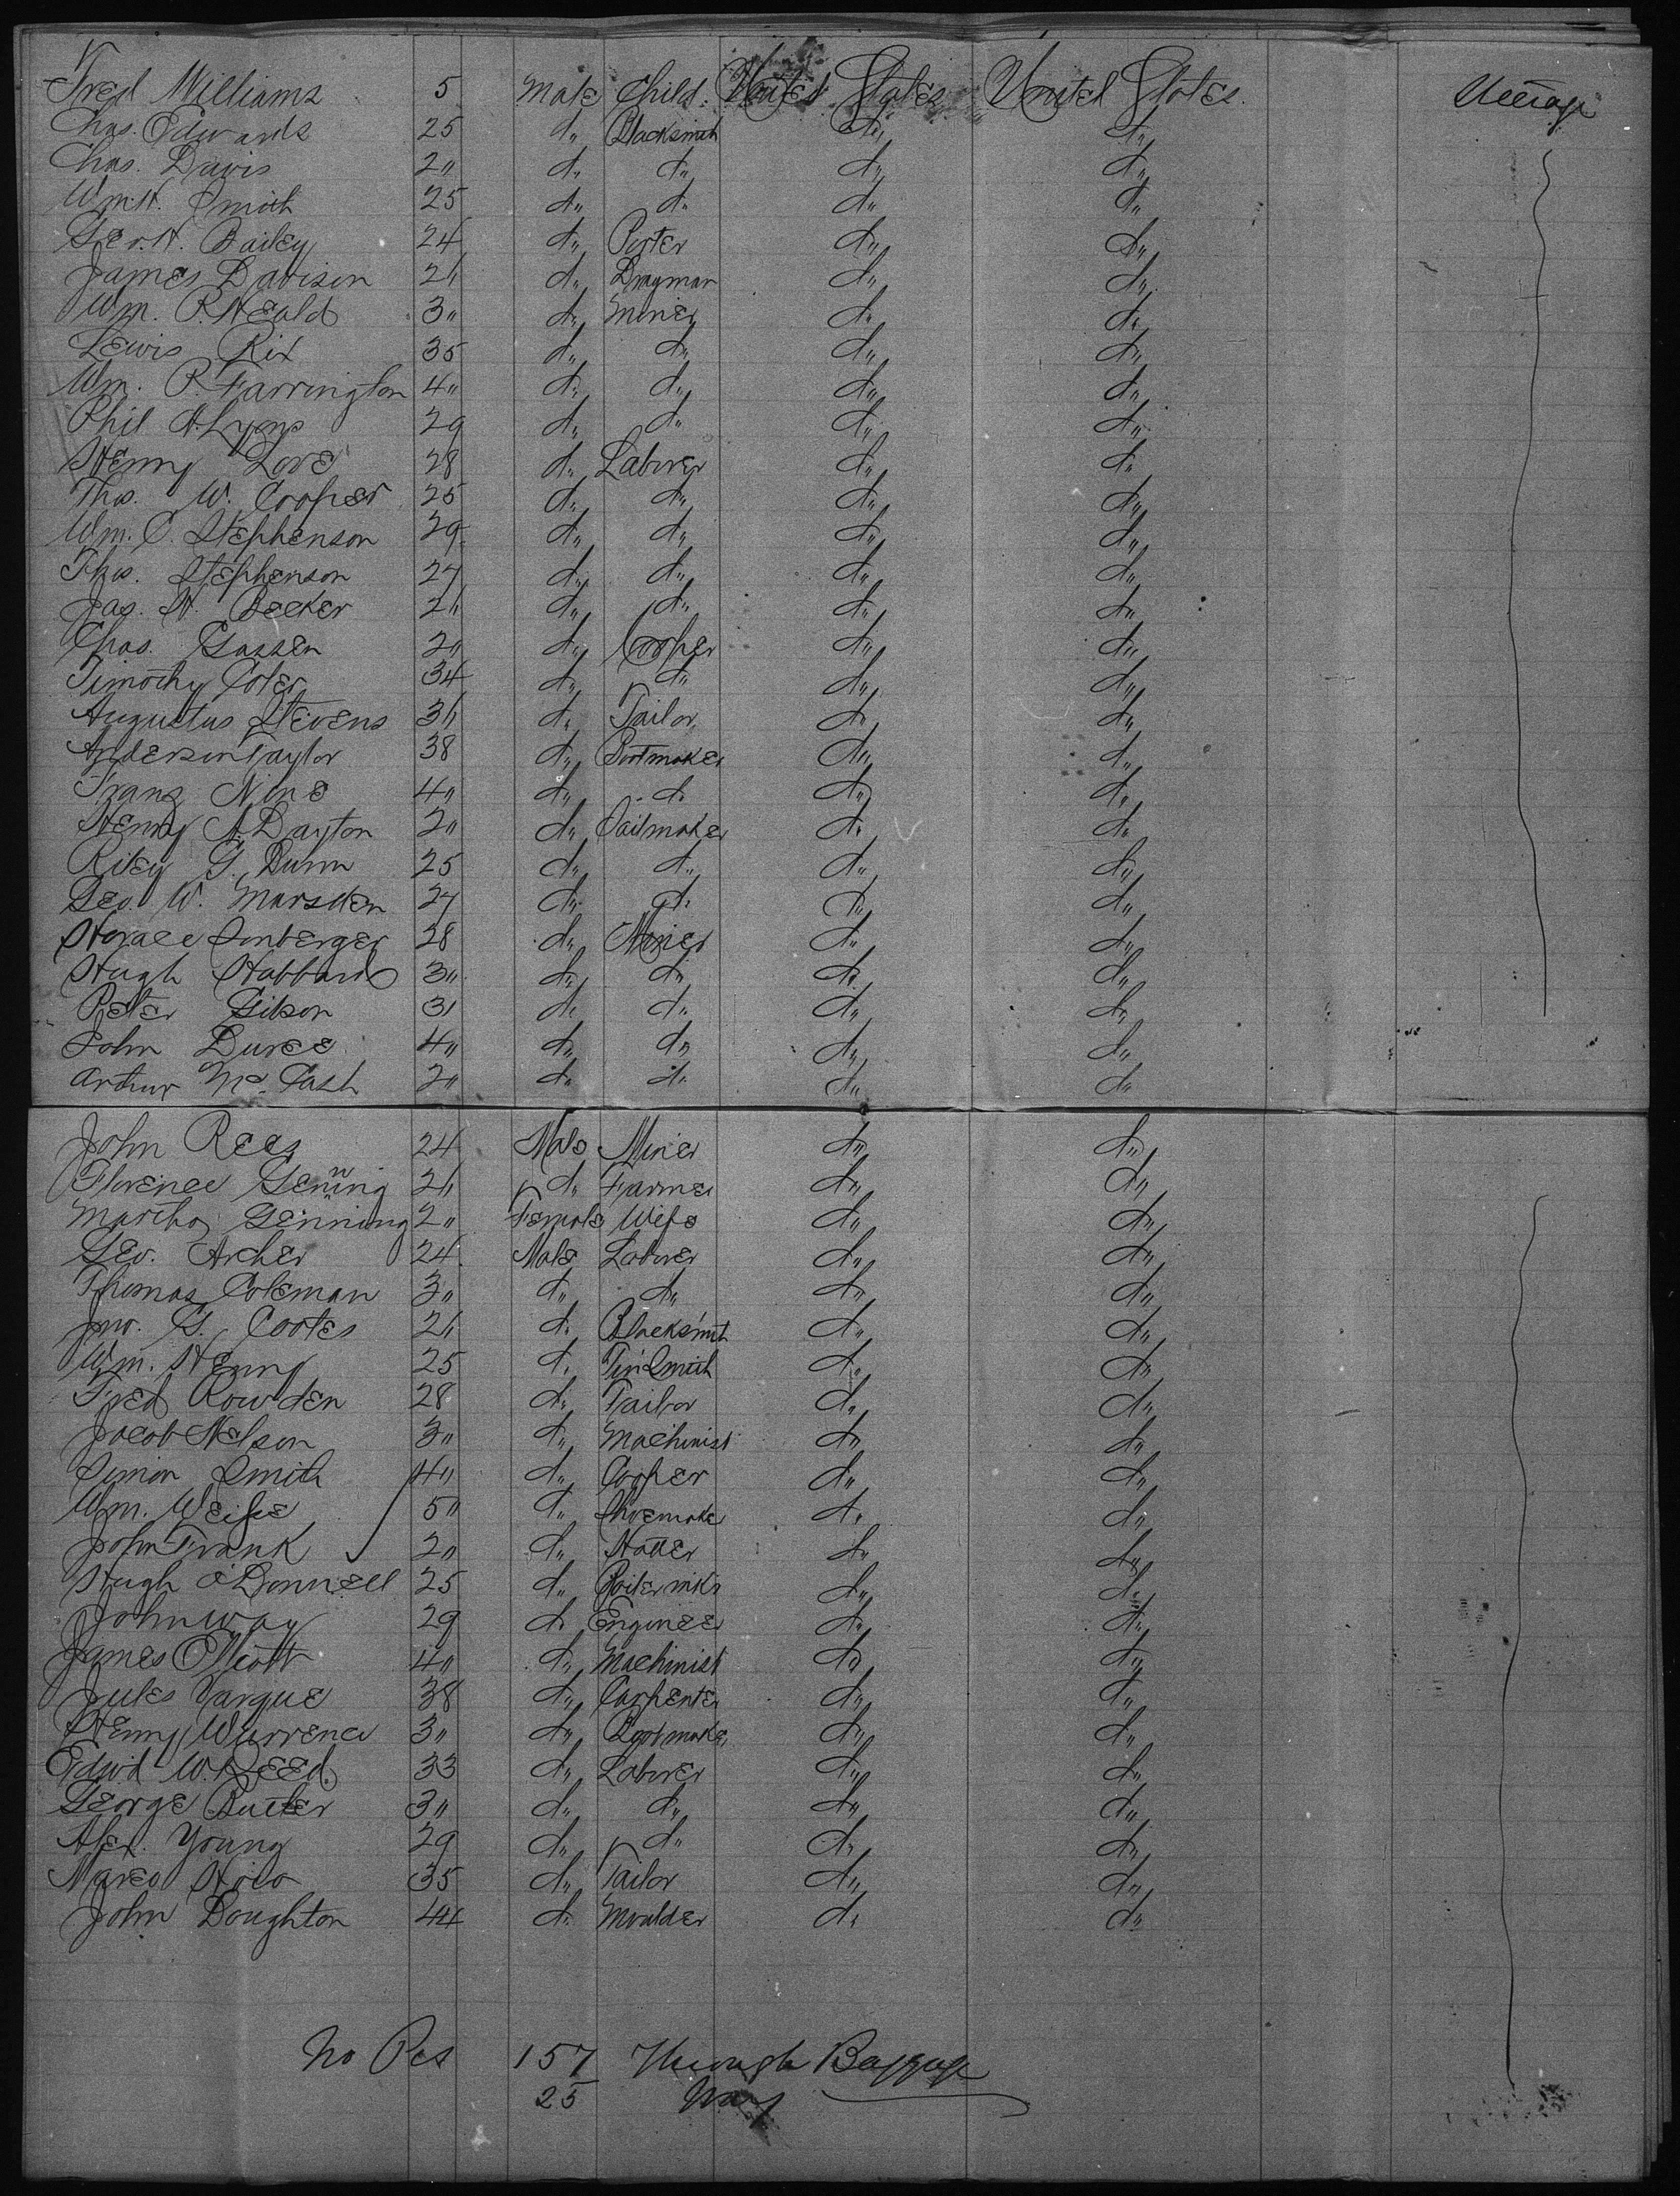 Fred Williams 5 Male Child. United States United States. Steerage
Chas. Edwards 25 d,, Blacksmith d,, d,,
Chas. Davis 2,, d,, d,, d,, d,,
Wm. H. Smith 25 d,, d,, d,, d,,
Geo. H. Bailey 24 d,, Porter d,, d,,
James Davison 21 d,, Drayman d,, d,,
Wm. P. Heald 3,, d,, Miner d,, d,,
Lewis Rix 35 d,, d,, d,, d,,
Wm. P. Farrington 4,, d,, d,, d,, d,,
Phil H. Lyons 29 d,, d,, d,, d,,
Henry Love 28 d,, Laborer d,, d,,
Thos. W. Cooper 25 d,, d,, d,, d,,
Wm. C. Stephenson 29 d,, d,, d,, d,,
Thos. Stephenson 27 d,, d,, d,, d,,
Jas. H. Becker 21 d,, d,, d,, d,,
Chas. Gassen 2,, d,, Cooper d,, d,,
Timothy Coler 34 d,, d,, d,, d,,
Augustus Stevens 31 d,, Tailor d,, d,,
Anderson Taylor 38 d,, Bootmaker d,, d,,
Franz Nine 4,, d,, d,, d,, d,,
Henry A. Dayton 2,, d,, Sailmaker d,, d,,
Riley G. Dunn 25 d,, d,, d,, d,,
Geo. W. Marsden 27 d,, d,, d,, d,,
Horace Sonberger 28 d,, Miner d,, d,,
Hugh Hubbard 3,, d,, d,, d,, d,,
Peter Gibson 31 d,, d,, d,, d,,
John Duree 4,, d,, d,, d,, d,,
Arthur McCash 2,, d,, d,, d,, d,,
John Rees 24 Male Miner d,, d,,
Florence Genning 21 d,, Farmer d,, d,,
Martha Genning 2,, Female Wife d,, d,,
Geo. Archer 24 Male Laborer d,, d,,
Thomas Coleman 3,, d,, d,, d,, d,,
Jno. G. Cootes 21 d,, Blacksmith d,, d,,
Wm. Henry 25 d,, Tin Smith d,, d,,
Fred Rowden 28 d,, Tailor d,, d,,
Jacob Nelson 3,, d,, Machinist d,, d,,
Simon Smith 4,, d,, Cooper d,, d,,
Wm. Weise 5,, d,, Shoemaker d,, d,,
John Frank 2,, d,, Hatter d,, d,,
Hugh O'Donnell 25 d,, Boilermkr d,, d,,
John Way 29 d,, Engineer d,, d,,
James Ollcott 4,, d,, Machinist d,, d,,
Jules Vargue 38 d,, Carpenter d,, d,,
Henry Warrence 3,, d,, Bootmaker d,, d,,
Edwd W. Reed 33 d,, Laborer d,, d,,
George Butler 3,, d,, d,, d,, d,,
Alex. Young 29 d,, d,, d,, d,,
35 d,, Tailor d,, d,,
John Boughton 44 d,, Moulder d,, d,,
No Pcs 157 Through Baggage
25 Way